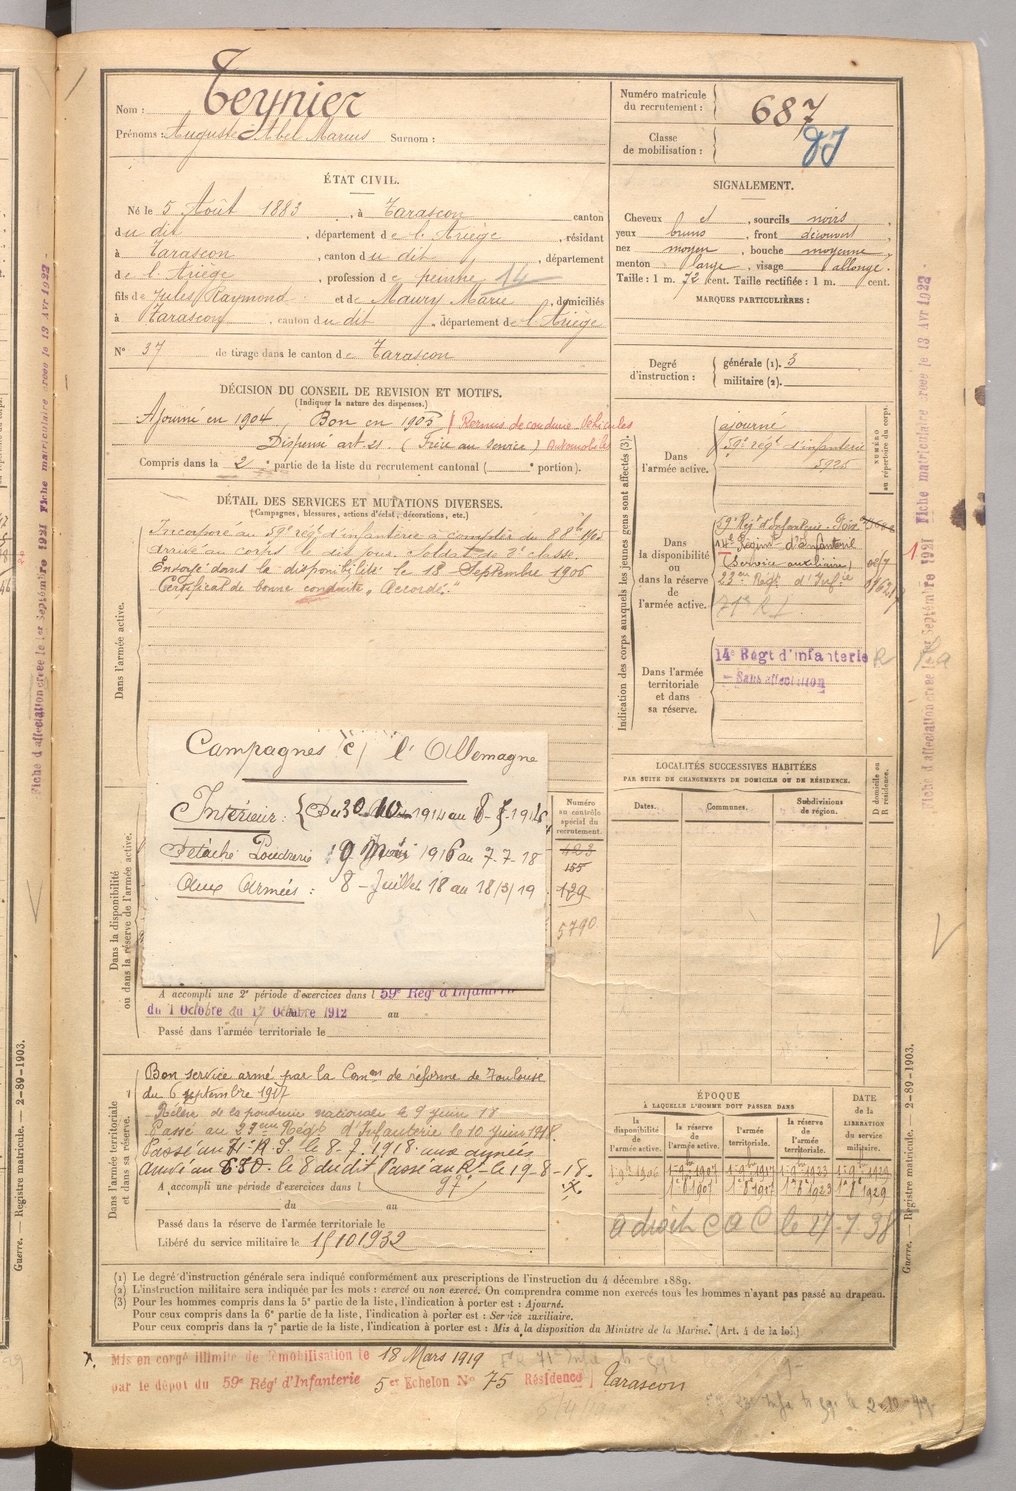 Nom : Teynier
Prénoms : Auguste Abel Marius Surnom :
Numéro matricule du recrutement : 687
Classe de mobilisation :
ÉTAT CIVIL.
Né le 5 Août 1883, à Tarascon canton
du dit, département de l'Ariège, résidant
à Tarascon, canton du dit, département
de l'Ariège, profession de peintre 14
fils de Jules Raymond et de Maury Marie, domiciliés
à Tarascon, canton du dit, département de l'Ariège
N° 37 de tirage dans le canton de Tarascon
SIGNALEMENT.
Cheveux et, sourcils noirs,
yeux bruns, front découvert,
nez moyen, bouche moyenne,
menton large, visage allongé.
Taille : 1 m. 72 cent. Taille rectifiée : 1 m. cent.
MARQUES PARTICULIÈRES :
Degré d'instruction : générale (1). 3
militaire (2).
DÉCISION DU CONSEIL DE REVISION ET MOTIFS.
(Indiquer la nature des dispenses.)
Ajourné en 1904 Bon en 1905 Permis de conduire Véhicules
Dispensé art. 21. (Frère au service) Automobiles
Compris dans la 2e partie de la liste du recrutement cantonal ( e portion).
DÉTAIL DES SERVICES ET MUTATIONS DIVERSES.
(Campagnes, blessures, actions d'éclat, décorations, etc.)
Dans l'armée active.
Incorporé au 59e rég.t d'infanterie à compter du 8 8bre 1905
arrivé au corps le dit jour. Soldat de 2e classe.
Envoyé dans la disponibilité le 18 Septembre 1906
Certificat de bonne conduite "Accordé."
Indication des corps auxquels les jeunes gens sont affectés (3).
NUMÉRO au répertoire du corps.
Dans l'armée active.
ajourné
59e rég.t d'infanterie
5925
Dans la disponibilité ou dans la réserve de l'armée active.
59e Rég.t d'Infanterie. Foix
(Service auxiliaire)
23me Rég.t d'Inf.ie
71e R.I.
Dans l'armée territoriale et dans sa réserve.
14e Régt d'infanterie
Sans affectation
LOCALITÉS SUCCESSIVES HABITÉES
PAR SUITE DE CHANGEMENTS DE DOMICILE OU DE RÉSIDENCE.
Dates. Communes. Subdivisions de région. D domicile ou R résidence.
Campagnes c/ l'Allemagne
Intérieur : Du 30 10 1914 au
Détaché Poudrerie 9 Mai 1916 au 7-7-18
Aux Armées : 8 - Juillet 18 au 18/3/19
Numéro au contrôle spécial du recrutement.
423
155
129
5790
Dans la disponibilité ou dans la réserve de l'armée active.
A accompli une 2e période d'exercices dans l 59e Rég d'Infanterie
du 1 Octobre au 17 Octobre 1912 au
Passé dans l'armée territoriale le
Dans l'armée territoriale et dans sa réserve.
Bon service armé par la Comon de réforme de Toulouse
du 6 septembre 1917
Relevé de la poudrerie nationale le 9 Juin 18
Passé au 23eme Régt d'Infanterie le 10 Juin 1918.
Passé au 71e R.I. le 8-7-1918 aux armées
le 8 du dit Passé au le 19-8-18.
A accompli une période d'exercices dans l
du au
Passé dans la réserve de l'armée territoriale le
Libéré du service militaire le 15 10 1932
ÉPOQUE
À LAQUELLE L'HOMME DOIT PASSER DANS
la disponibilité de l'armée active. la réserve de l'armée active. l'armée territoriale. la réserve de l'armée territoriale. DATE de la LIBÉRATION du service militaire.
1 8bre 1907 1 8bre 1917 1 8bre 1923 1 8bre 1929
a droit C A C le 27-7-38
(1) Le degré d'instruction générale sera indiqué conformément aux prescriptions de l'instruction du 4 décembre 1889.
(2) L'instruction militaire sera indiquée par les mots : exercé ou non exercé. On comprendra comme non exercés tous les hommes n'ayant pas passé au drapeau.
(3) Pour les hommes compris dans la 5e partie de la liste, l'indication à porter est : Ajourné.
Pour ceux compris dans la 6e partie de la liste, l'indication à porter est : Service auxiliaire.
Pour ceux compris dans la 7e partie de la liste, l'indication à porter est : Mis à la disposition du Ministre de la Marine. (Art. 4 de la loi.)
Mis en congé illimité de démobilisation le 18 Mars 1919
par le dépôt du 59e Rég' d'Infanterie 5er Echelon No 75 Résidence Tarascon
Guerre. — Registre matricule. — 2-89-1903.
Guerre. — Registre matricule. — 2-89-1903.
Fiche d'affectation créée le 1er Septembre 1921 Fiche matriculaire créée le 13 Avr 1922
Fiche d'affectation créée le 1er Septembre 1921 Fiche matriculaire créée le 13 Avr 1922